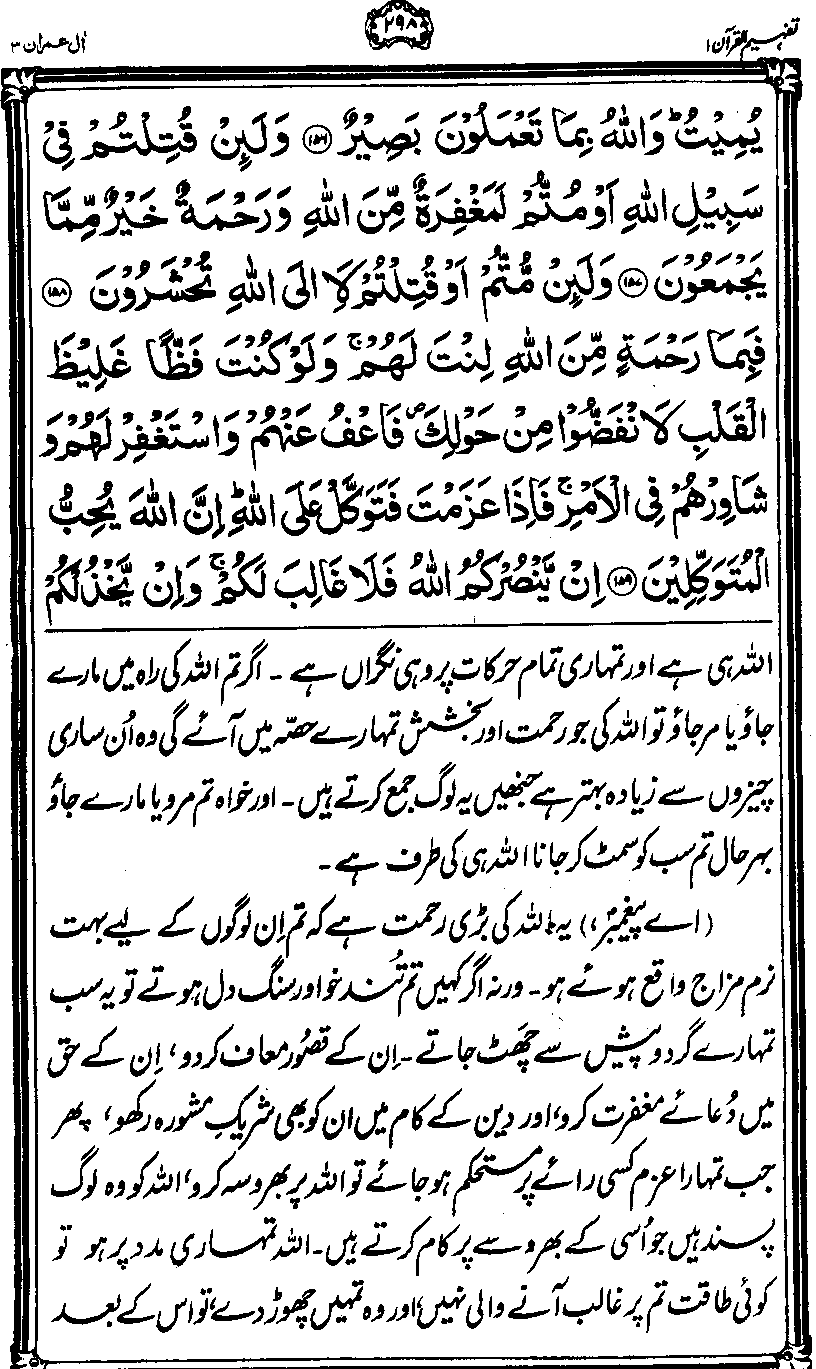 تفہیم القرآن ۱
۲۹۸
اٰل عمران ۳
يُمِيْتُ ؕ وَاللّٰهُ بِمَا تَعْمَلُوْنَ بَصِيْرٌ ﴿۱۵۶﴾ وَلَئِنْ قُتِلْتُمْ فِىْ
سَبِيْلِ اللّٰهِ اَوْ مُتُّمْ لَمَغْفِرَةٌ مِّنَ اللّٰهِ وَرَحْمَةٌ خَيْرٌ مِّمَّا
يَجْمَعُوْنَ ﴿۱۵۷﴾ وَلَئِنْ مُّتُّمْ اَوْ قُتِلْتُمْ لَا۟اِلَى اللّٰهِ تُحْشَرُوْنَ ﴿۱۵۸﴾
فَبِمَا رَحْمَةٍ مِّنَ اللّٰهِ لِنْتَ لَهُمْ ۚ وَلَوْ كُنْتَ فَظًّا غَلِيْظَ
الْقَلْبِ لَا نْفَضُّوْا مِنْ حَوْلِكَ ۖ فَاعْفُ عَنْهُمْ وَاسْتَغْفِرْ لَهُمْ وَ
شَاوِرْهُمْ فِى الْاَمْرِ ۚ فَاِذَا عَزَمْتَ فَتَوَكَّلْ عَلَى اللّٰهِ ؕ اِنَّ اللّٰهَ يُحِبُّ
الْمُتَوَكِّلِيْنَ ﴿۱۵۹﴾ اِنْ يَّنْصُرْكُمُ اللّٰهُ فَلَا غَالِبَ لَكُمْ ۚ وَاِنْ يَّخْذُلْكُمْ
اللہ ہی ہے اور تمہاری تمام حرکات پر وہی نگراں ہے ۔ اگر تم اللہ کی راہ میں مارے
جاؤ یا مر جاؤ تو اللہ کی جو رحمت اور بخشش تمہارے حصّہ میں آئے گی وہ اُن ساری
چیزوں سے زیادہ بہتر ہے جنھیں یہ لوگ جمع کرتے ہیں ۔ اور خواہ تم مرو یا مارے جاؤ
بہر حال تم سب کو سمٹ کر جانا اللہ ہی کی طرف ہے ۔
(اے پیغمبرؐ،) یہ اللہ کی بڑی رحمت ہے کہ تم اِن لوگوں کے لیے بہت
نرم مزاج واقع ہوئے ہو ۔ ورنہ اگر کہیں تم تُند خو اور سنگ دل ہوتے تو یہ سب
تمہارے گرد و پیش سے چَھٹ جاتے ۔ اِن کے قصُور معاف کر دو، اِن کے حق
میں دُعائے مغفرت کرو، اور دین کے کام میں ان کو بھی شریکِ مشورہ رکھو، پھر
جب تمہارا عزم کسی رائے پر مستحکم ہو جائے تو اللہ پر بھروسہ کرو، اللہ کو وہ لوگ
پسند ہیں جو اُسی کے بھروسے پر کام کرتے ہیں ۔ اللہ تمہاری مدد پر ہو تو
کوئی طاقت تم پر غالب آنے والی نہیں، اور وہ تمہیں چھوڑ دے، تو اس کے بعد